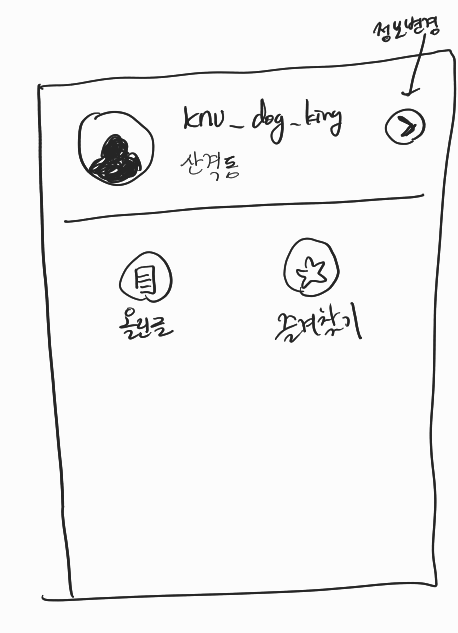 정보변경
knu_dog_king
산격동
올린글
즐겨찾기